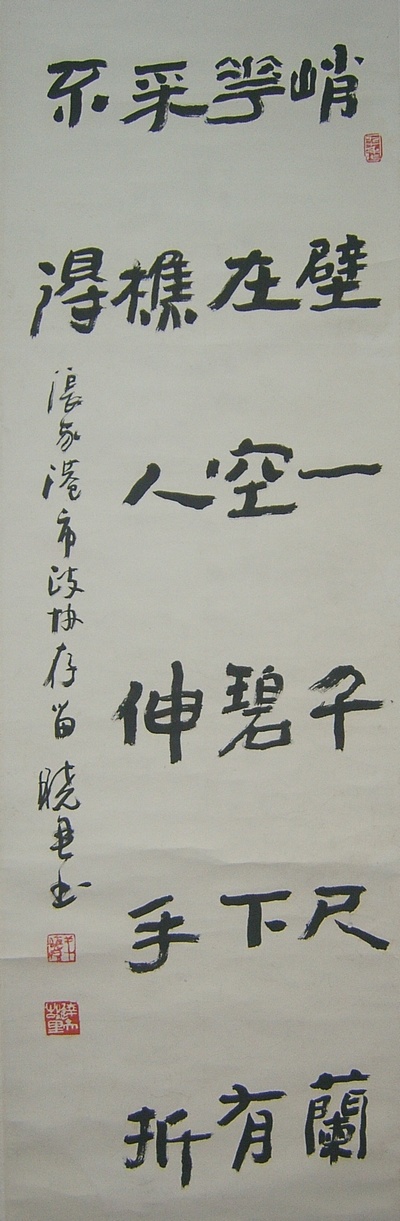 峭壁一千尺蘭
蕐在空碧下有
采樵人伸手折
不得
張家港市政协存留 曉君书